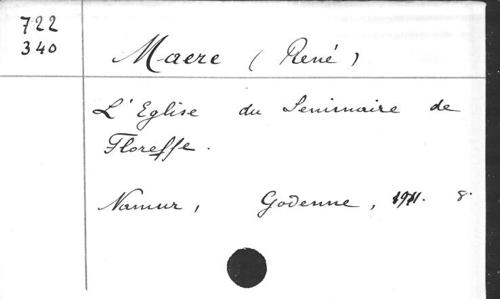 722
340
Maere (René)
L'Eglise du Seminaire de
Floreffe.
Namur, Godenne, 1911. 8.